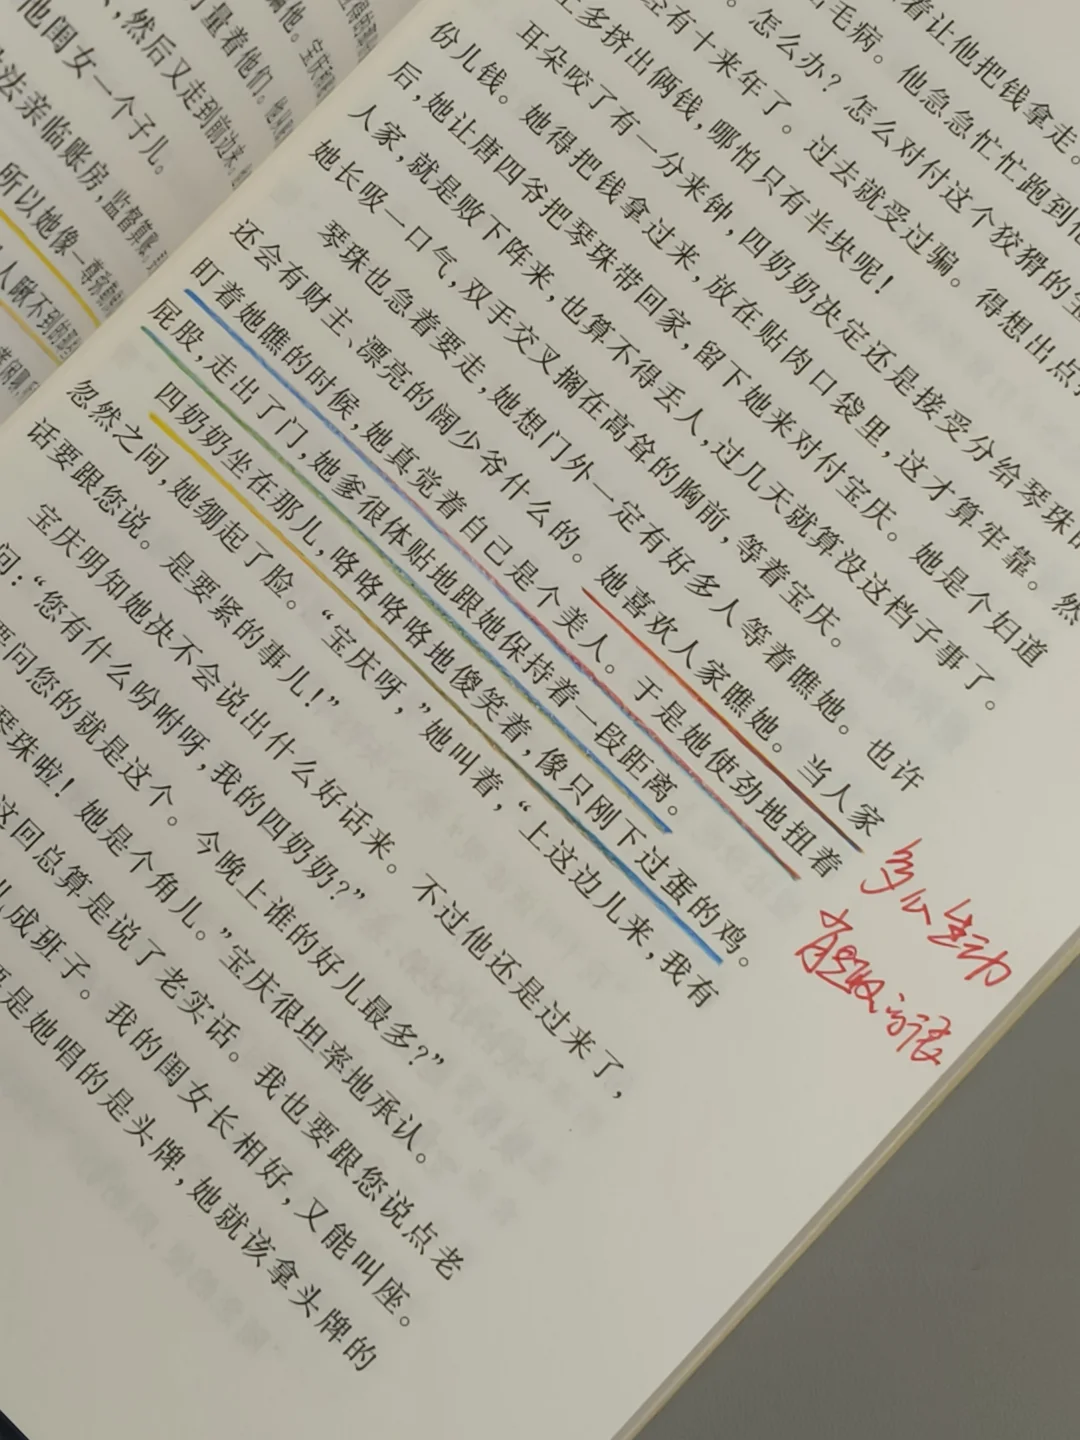 ，然后又走到前边来，
量着他们。
他闺女一个子儿。
法亲临账房，监督算账，
所以她像一尊弥
人瞅不到的
着让他把钱拿走。
出毛病。他急急忙忙跑到他
。怎么办？怎么对付这个狡猾的宝
经有十来年了。过去就受过骗。得想出点
上多挤出俩钱，哪怕只有半块呢！
耳朵咬了有一分来钟，四奶奶决定还是接受分给琴珠的
份儿钱。她得把钱拿过来，放在贴肉口袋里，这才算牢靠。然
后，她让唐四爷把琴珠带回家，留下她来对付宝庆。她是个妇道
人家，就是败下阵来，也算不得丢人，过几天就算没这档子事了。
她长吸一口气，双手交叉搁在高耸的胸前，等着宝庆。
琴珠也急着要走，她想门外一定有好多人等着瞧她。也许
还会有财主、漂亮的阔少爷什么的。她喜欢人家瞧她。当人家
盯着她瞧的时候，她真觉着自己是个美人。于是她使劲地扭着
屁股，走出了门，她爹很体贴地跟她保持着一段距离。
四奶奶坐在那儿，咯咯咯地傻笑着，像只刚下过蛋的鸡。
忽然之间，她绷起了脸。“宝庆呀，”她叫着，“上这边儿来，我有
话要跟您说。是要紧的事儿！”
宝庆明知她决不会说出什么好话来。不过他还是过来了，
问：“您有什么吩咐呀，我的四奶奶？”
要问您的就是这个。今晚上谁的好儿最多？”
琴珠啦！她是个角儿。”宝庆很坦率地承认。
这回总算是说了老实话。我也要跟您说点老
儿成班子。我的闺女长相好，又能叫座。
是她唱的是头牌，她就该拿头牌的
多么生动